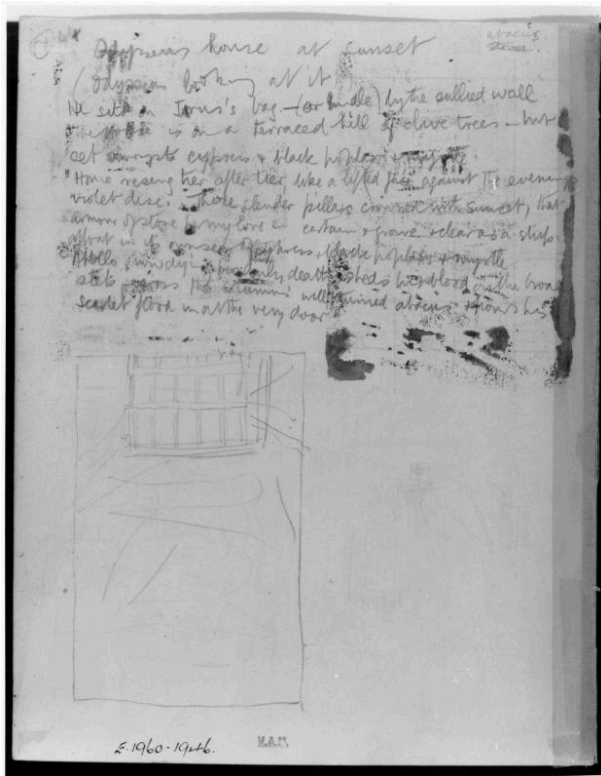 abacus
Odysseus house at sunset
(Odysseus looking at it)
He sits on Irus's bag - (or bundle) by the sullied wall
The house is on a terraced hill of olive trees - but
cypress & black poplars &
"House rising tier after tier, like a lifted against the evening's
violet disc. Those slender pillars crowned with sunset, that
armour of stone for my love - certain & grave & clear as a ship
afloat in its of cypress, black poplars & myrtle
Apollo death sheds his blood on the broad
steps, across the columns well abacus & pours his
scarlet flood in at the very door
E.1960-1946.
V.A.M.